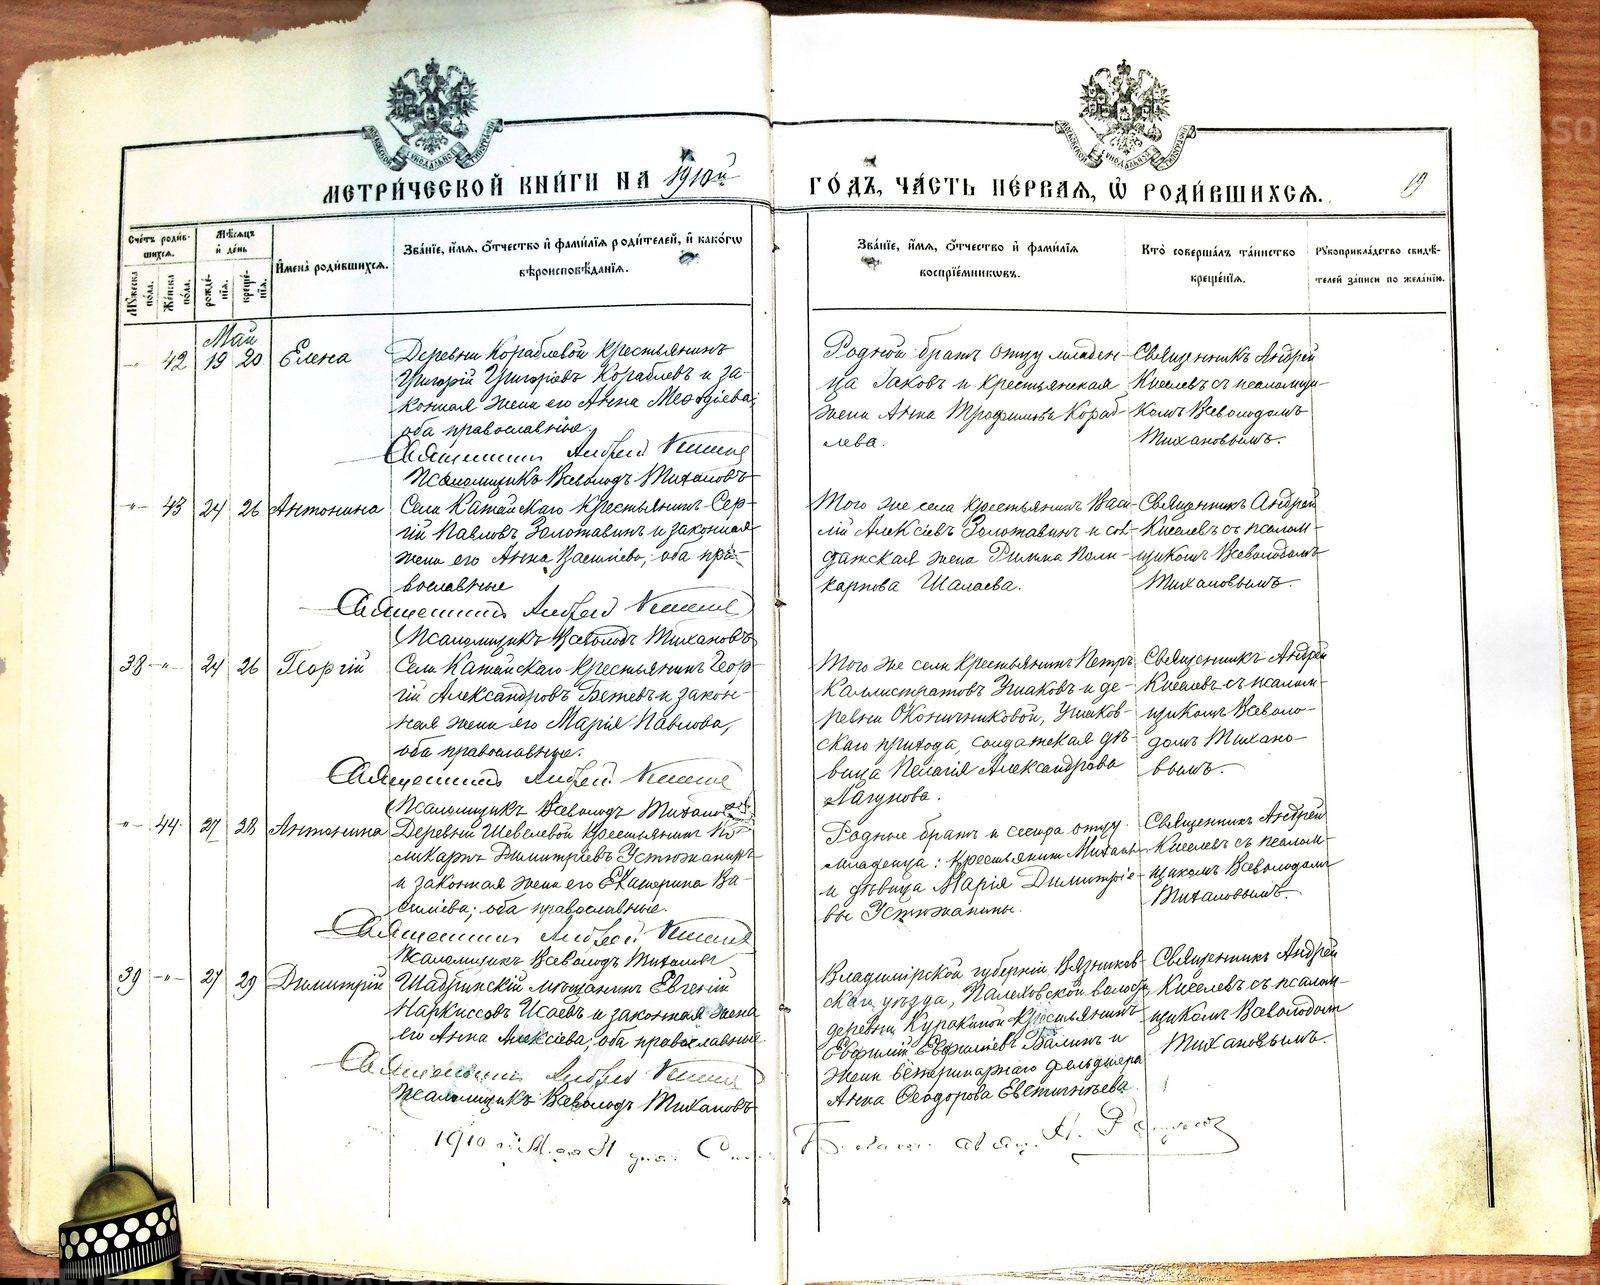 МЕТРИ́ЧЕСКОЙ КНИ́ГИ НА 1910й ГО́ДЪ, ЧА́СТЬ ПЕ́РВАЯ, Ѡ РОДИ́ВШИХСѦ.
19
Сче́тъ роди́вшихся.
Му́жеска по́ла.
Же́нска по́ла.
Мѣ́сяцъ и де́нь
рожде́нїя.
креще́нїя.
И́мена роди́вшихся.
Зва́нїе, и́мя, о́тчество и фами́лїя роди́телей, и како́гѡ
вѣроисповѣ́данїя.
Зва́нїе, и́мя, о́тчество и фами́лїя
воспрїе́мникѡвъ.
Кто̀ соверша́лъ та́инство
креще́нїя.
Рꙋкоприкла́дство свидѣ́-
телей за́писи по жела́нїю.
Май
42 19 20 Елена
Деревни Кораблевой крестьянинъ
Григорій Григоріевъ Кораблевъ и за-
конная жена его Анна Меѳодіева;
оба православные.
Священникъ Андрей Киселев
Псаломщикъ Всеволодъ Тихановъ
Родной братъ отцу младен-
ца Іаковъ и крестьянская
жена Анна Трофимова Кораб-
лева.
Священникъ Андрей
Киселевъ съ псаломщи-
комъ Всеволодомъ
Тихановымъ.
43 24 26 Антонина
Села Катайскаго крестьянинъ Сер-
гій Павловъ Золотавинъ и законная
жена его Анна Васильева; оба пра-
вославные
Священникъ Андрей Киселев
Псаломщикъ Всеволодъ Тихановъ
Того же села крестьянинъ Васи-
лій Алексіевъ Золотавинъ и сол-
датская жена Римма Поли-
карпова Шалаева.
Священникъ Андрей
Киселевъ съ псалом-
щикомъ Всеволодомъ
Тихановымъ.
38 24 26 Георгій
Села Катайскаго крестьянинъ Геор-
гій Александровъ Бетевъ и закон-
ная жена его Марія Павлова,
оба православные.
Священникъ Андрей Киселев
Псаломщикъ Всеволодъ Тихановъ
Того же села крестьянинъ Петръ
Каллистратовъ Ушаковъ и де-
ревни Оконичниковой, Ушаков-
скаго прихода, солдатская дѣ-
вица Пелагія Александрова
Лагунова.
Священникъ Андрей
Киселевъ съ псалом-
щикомъ Всеволо-
домъ Тихано-
вымъ.
44 27 28 Антонина
Деревни Шевелевой крестьянинъ По-
ликарпъ Димитріевъ Устюжанинъ
и законная жена его Екатерина Ва-
сильева; оба православные.
Священникъ Андрей Киселев
Псаломщикъ Всеволодъ Тихановъ
Родные братъ и сестра отцу
младенца: крестьянинъ Михаилъ
и дѣвица Марія Димитріе-
вы Устюжанины.
Священникъ Андрей
Киселевъ съ псалом-
щикомъ Всеволодомъ
Тихановымъ.
39 27 29 Димитрій
Шадринскій мѣщанинъ Евгеній
Наркиссовъ Исаевъ и законная жена
его Анна Алексіева; оба православные
Священникъ Андрей Киселев
Псаломщикъ Всеволодъ Тихановъ
Владимірской губерніи Вязников-
скаго уѣзда, Палеховской волости
деревни Куракиной крестьянинъ
Евфимій Евфиміевъ Балинъ и
жена ветеринарнаго фельдшера
Анна Ѳеодорова Евстигнѣева.
Священникъ Андрей
Киселевъ съ псалом-
щикомъ Всеволодомъ
Тихановымъ.
1910 Мая 31 дня